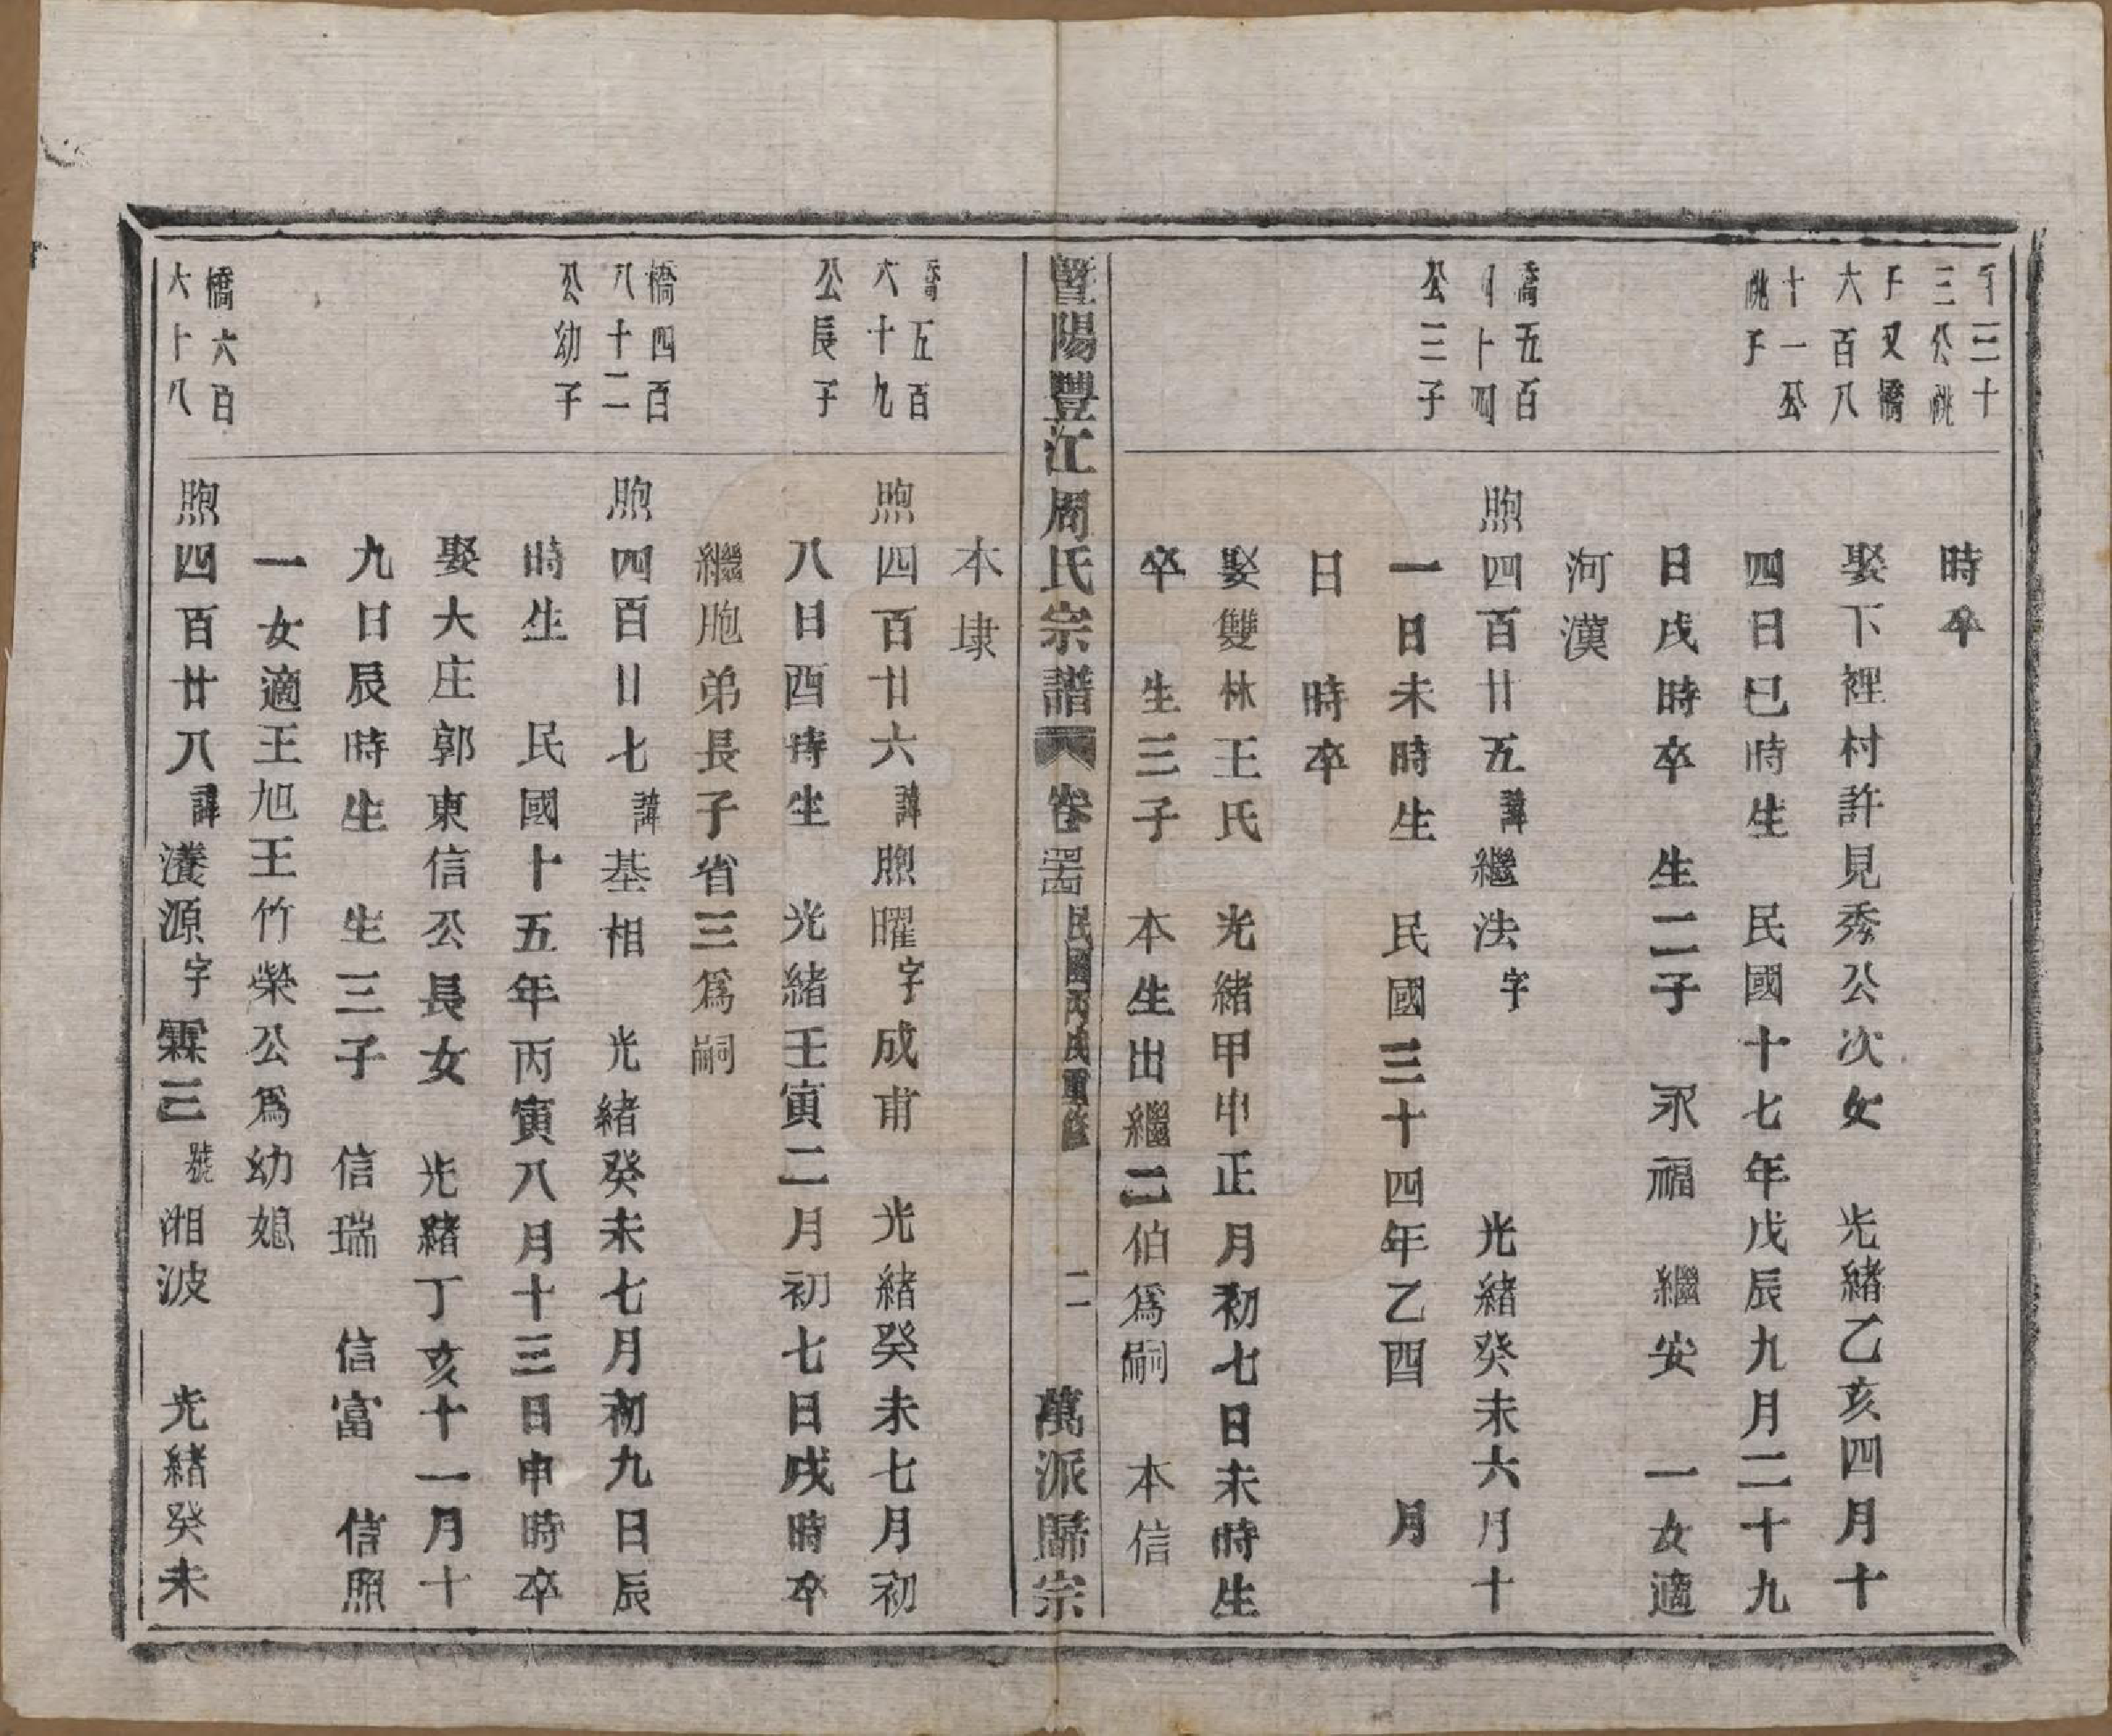 千三十
三公祧
子又橋
六百八
十一公
祧子
時卒
娶下裡村許見秀公次女　光緒乙亥四月十
四日巳時生　民國十七年戊辰九月二十九
日戌時卒　生二子　永福　繼安　一女適
河漢
橋五百
四十四
公三子
煦四百廿五諱繼法字　光緒癸未六月十
一日未時生　民國三十四年乙酉　月
日　時卒
娶雙林王氏　光緒甲申正月初七日未時生
卒　生三子　本生出繼二伯爲嗣　本信
暨陽豐江周氏宗譜　卷　民國丙戌重修　二　萬派歸宗
本埭
橋五百
六十九
公長子
煦四百廿六諱煦曜字成甫　光緒癸未七月初
八日酉時生　光緒壬寅二月初七日戌時卒
繼胞弟長子省三爲嗣
橋四百
八十二
公幼子
煦四百廿七諱基相　光緒癸未七月初九日辰
時生　民國十五年丙寅八月十三日申時卒
娶大庄郭東信公長女　光緒丁亥十一月十
九日辰時生　生三子　信瑞　信富　信照
一女適王旭王竹榮公爲幼媳
橋六百
六十八
煦四百廿八諱濮源字霖三號湘波　光緒癸未